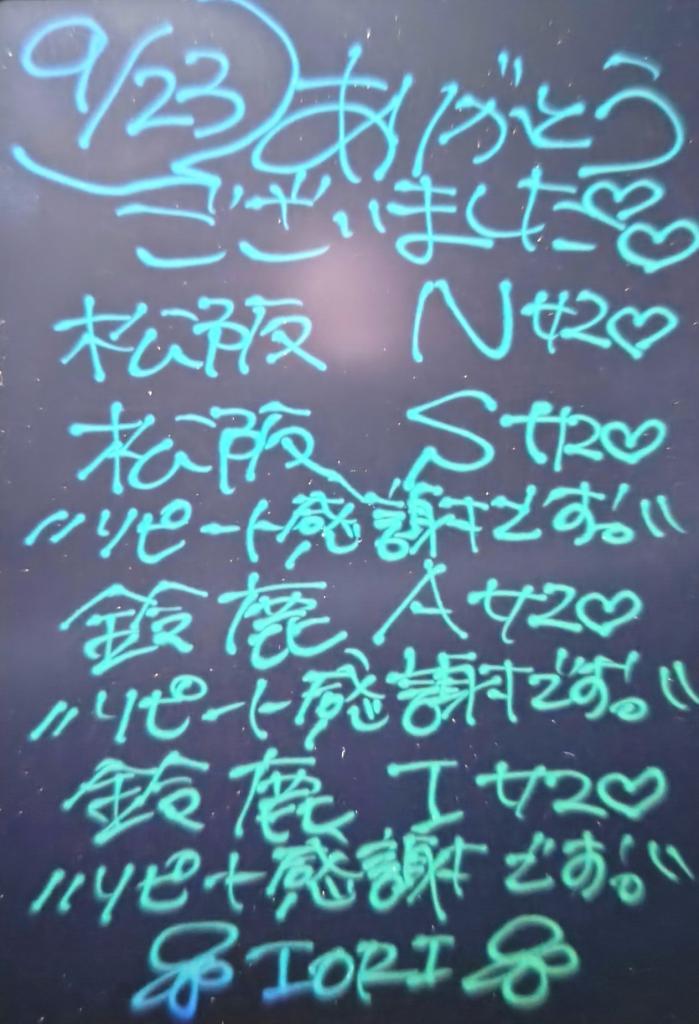 9/23 ありがとう
ございました♡♡
松阪 Nサン♡
松阪 Sサン♡
〃リピート感謝です。〃
鈴鹿 Aサン♡
〃リピート感謝です。〃
鈴鹿 Iサン♡
〃リピート感謝です。〃
IORI